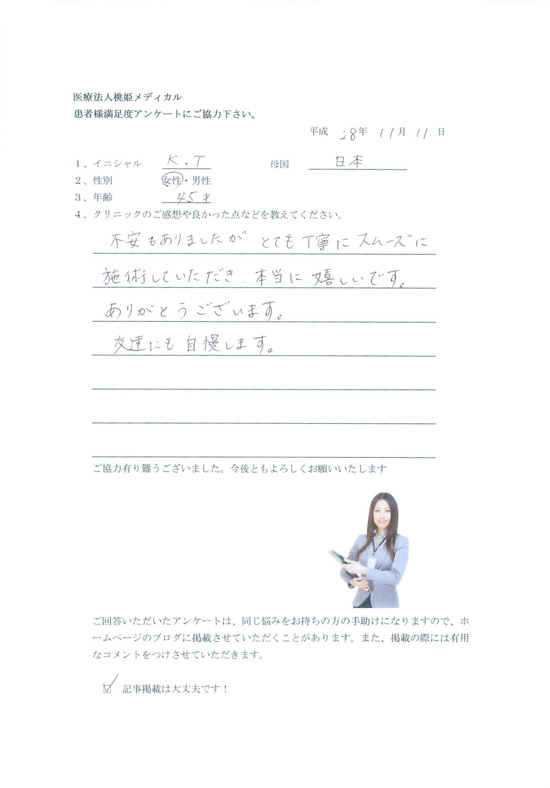 医療法人桃姫メディカル
患者様満足度アンケートにご協力下さい。
平成 28年 11月 11日
1、イニシャル K.T 母国 日本
2、性別 女性・男性
3、年齢 45才
4、クリニックのご感想や良かった点などを教えてください。
不安もありましたが とても丁寧にスムーズに
施術していただき、本当に嬉しいです。
ありがとうございます。
友達にも自慢します。
ご協力有り難うございました。今後ともよろしくお願いいたします
ご回答いただいたアンケートは、同じ悩みをお持ちの方の手助けになりますので、ホ
ームページのブログに掲載させていただくことがあります。また、掲載の際には有用
なコメントをつけさせていただきます。
☑ 記事掲載は大丈夫です！